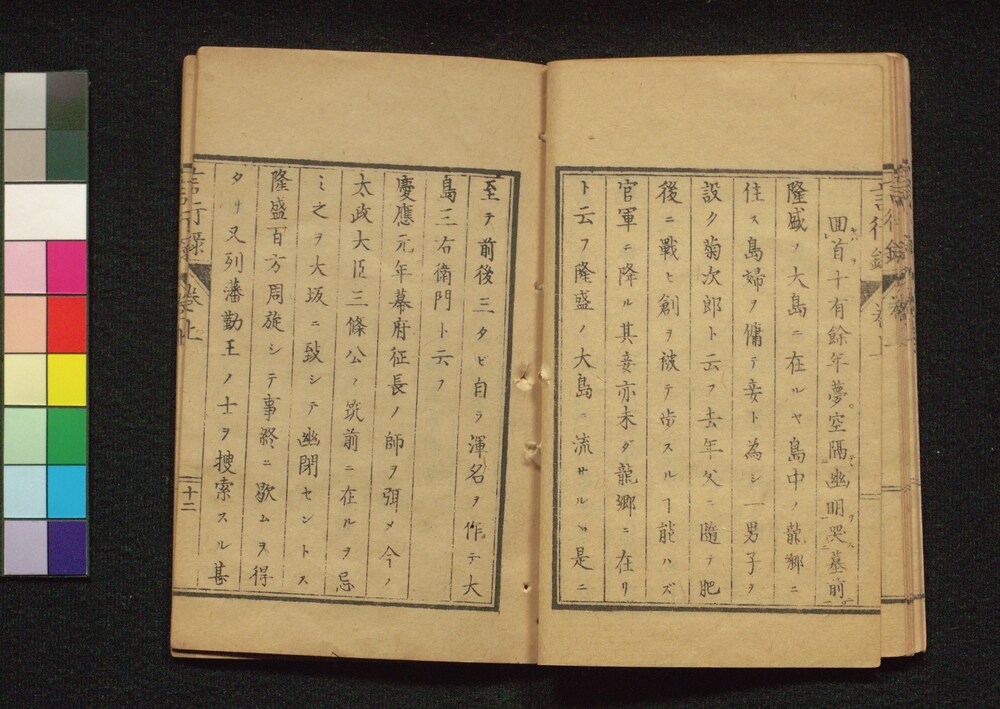 回首十有餘年夢空隔幽明哭墓前
隆盛ノ大島ニ在ルヤ島中ノ龍鄉ニ
住ス島婦ヲ傭テ妾ト為シ一男子ヲ
設ク菊次郎ト云フ去年父ニ隨テ肥
後ニ戰ヒ創ヲ被テ歩スルヿ能ハズ
官軍ニ降ル其妾亦未ダ龍鄉ニ在リ
ト云フ隆盛ノ大島ニ流サルヽ是ニ
至テ前後三タビ自ラ渾名ヲ作テ大
島三右衛門ト云フ
慶應元年幕府征長ノ師ヲ弭メ今ノ
太政大臣三條公ノ筑前ニ在ルヲ忌
ミ之ヲ大坂ニ致シテ幽閉セントス
隆盛百方周旋シテ事終ニ歇ムヲ得
タリ又列藩勤王ノ士ヲ捜索スル甚
言行錄
卷上
十二